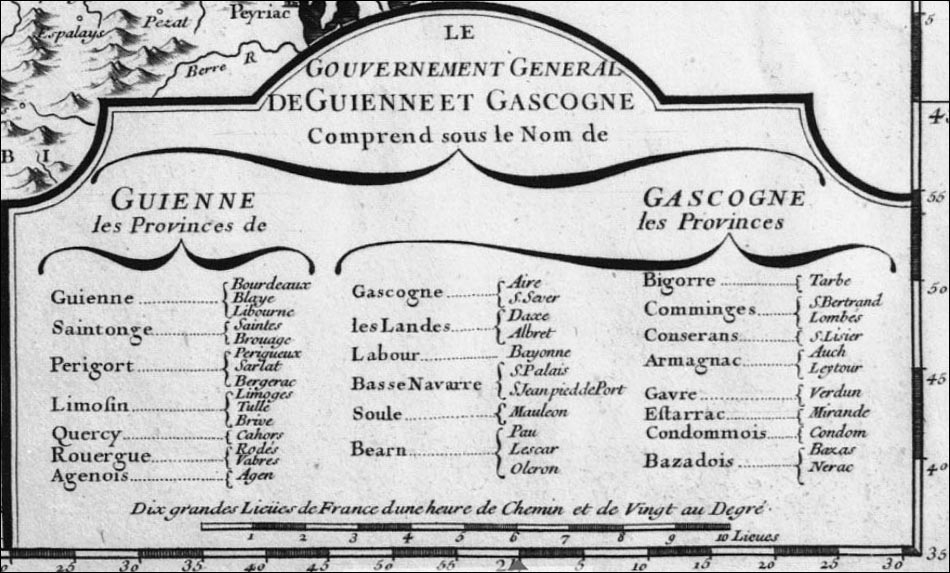 Peyriac
Pezat
Espalays
Berre R
B I
LE
GOUVERNEMENT GENERAL
DE GUIENNE ET GASCOGNE
Comprend sous le Nom de
GUIENNE
les Provinces de
Guienne Bourdeaux
Blaye
Libourne
Saintonge Saintes
Brouage
Perigort Perigueux
Sarlat
Bergerac
Limosin Limoges
Tulle
Brive
Quercy Cahors
Rouergue Rodés
Vabres
Agenois Agen
GASCOGNE
les Provinces
Gascogne Aire
S.Sever
les Landes Daxe
Albret
Labour Bayonne
Basse Navarre S.Palais
S.Jean pied de Port
Soule Mauleon
Bearn Pau
Lescar
Oleron
Bigorre Tarbe
Comminges S.Bertrand
Lombes
Conserans S.Lisier
Armagnac Auch
Leytour
Gavre Verdun
Estarrac Mirande
Condommois Condom
Bazadois Baxas
Nerac
Dix grandes Lieües de France dune heure de Chemin et de Vingt au Degré.
1 2 3 4 5 6 7 8 9 10 Lieues
5
55
50
45
40
35
20 25 30 35 40 45 50 55 5 10 15 20 25 30